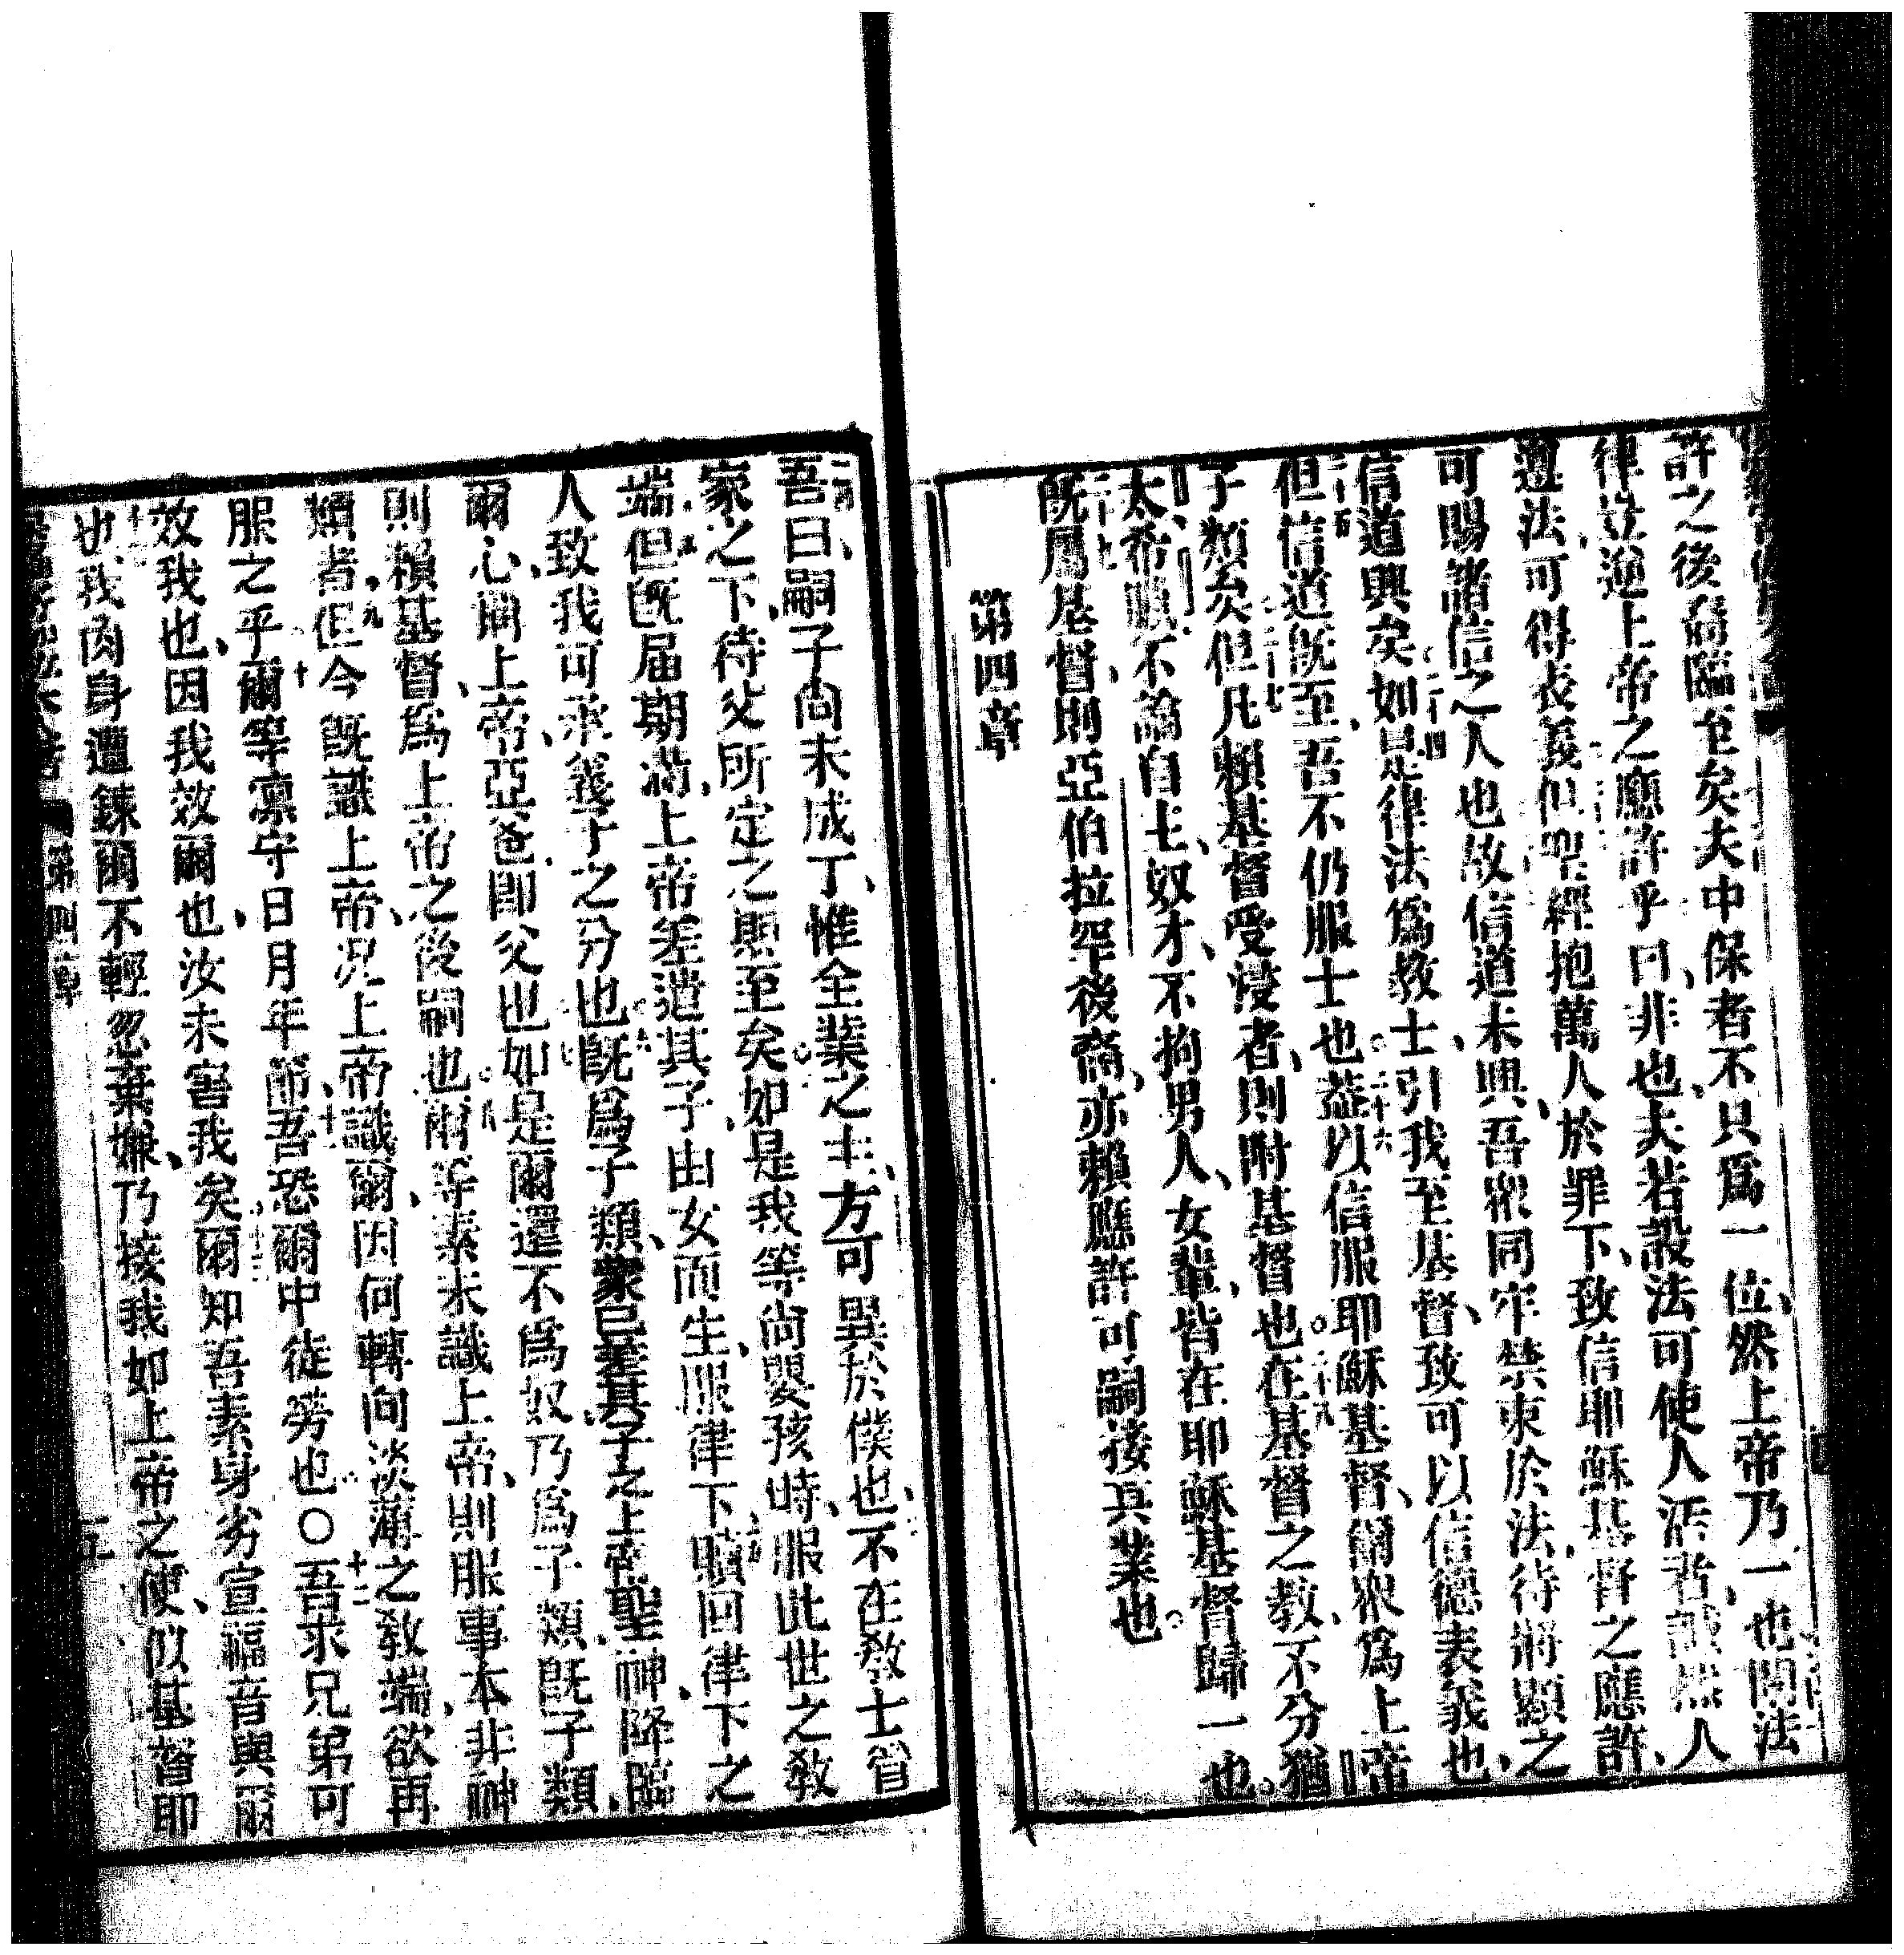 許之後裔臨至矣夫中保者不只爲一位、然上帝乃一也問法
律豈逆上帝之應許乎曰、非也、夫若設法可使人活者、誠然人
遵法、可得表義但聖經抱萬人於罪下、致信耶穌基督之應許、
可賜諸信之人也故信道未興、吾衆同牢禁束於法、待將顯之
信道興矣如是律法爲教士、引我至基督、致可以信德表義也、
但信道旣至、吾不仍服士也蓋以信服耶穌基督、爾衆爲上帝
子類矣但凡賴基督受浸者、則附基督也在基督之教、不分猶
太、希臘、不論自主、奴才、不拘男人、女輩、皆在耶穌基督歸一也
旣屬基督、則亞伯拉罕後裔、亦賴應許可嗣接其業也
第四章
吾曰、嗣子尚未成丁、惟全業之主、方可異於僕也、不在教士管
家之下、待父所定之期至矣如是我等尚嬰孩時、服此世之敎
端但旣届期滿、上帝差遣其子、由女而生、服律下贖回律下之
人致我可承義子之分也旣爲子類、蒙已差其子之上帝聖神、降臨
爾心、謂上帝、亞爸、即父也如是爾還不爲奴、乃爲子類、旣子類、
則賴基督、爲上帝之後嗣也爾等素未識上帝、則服事本非神
類者、但今旣識上帝、況上帝識爾、因何轉向淡薄之敎端、欲再
服之乎爾等凛守日月年節、吾恐爾中徒勞也〇吾求兄弟可
效我也、因我效爾也、汝未害我矣爾知吾素身劣宣福音與爾
也、我肉身遭鍊爾不輕忽棄嫌、乃接我如上帝之使、似基督耶
第四章
五